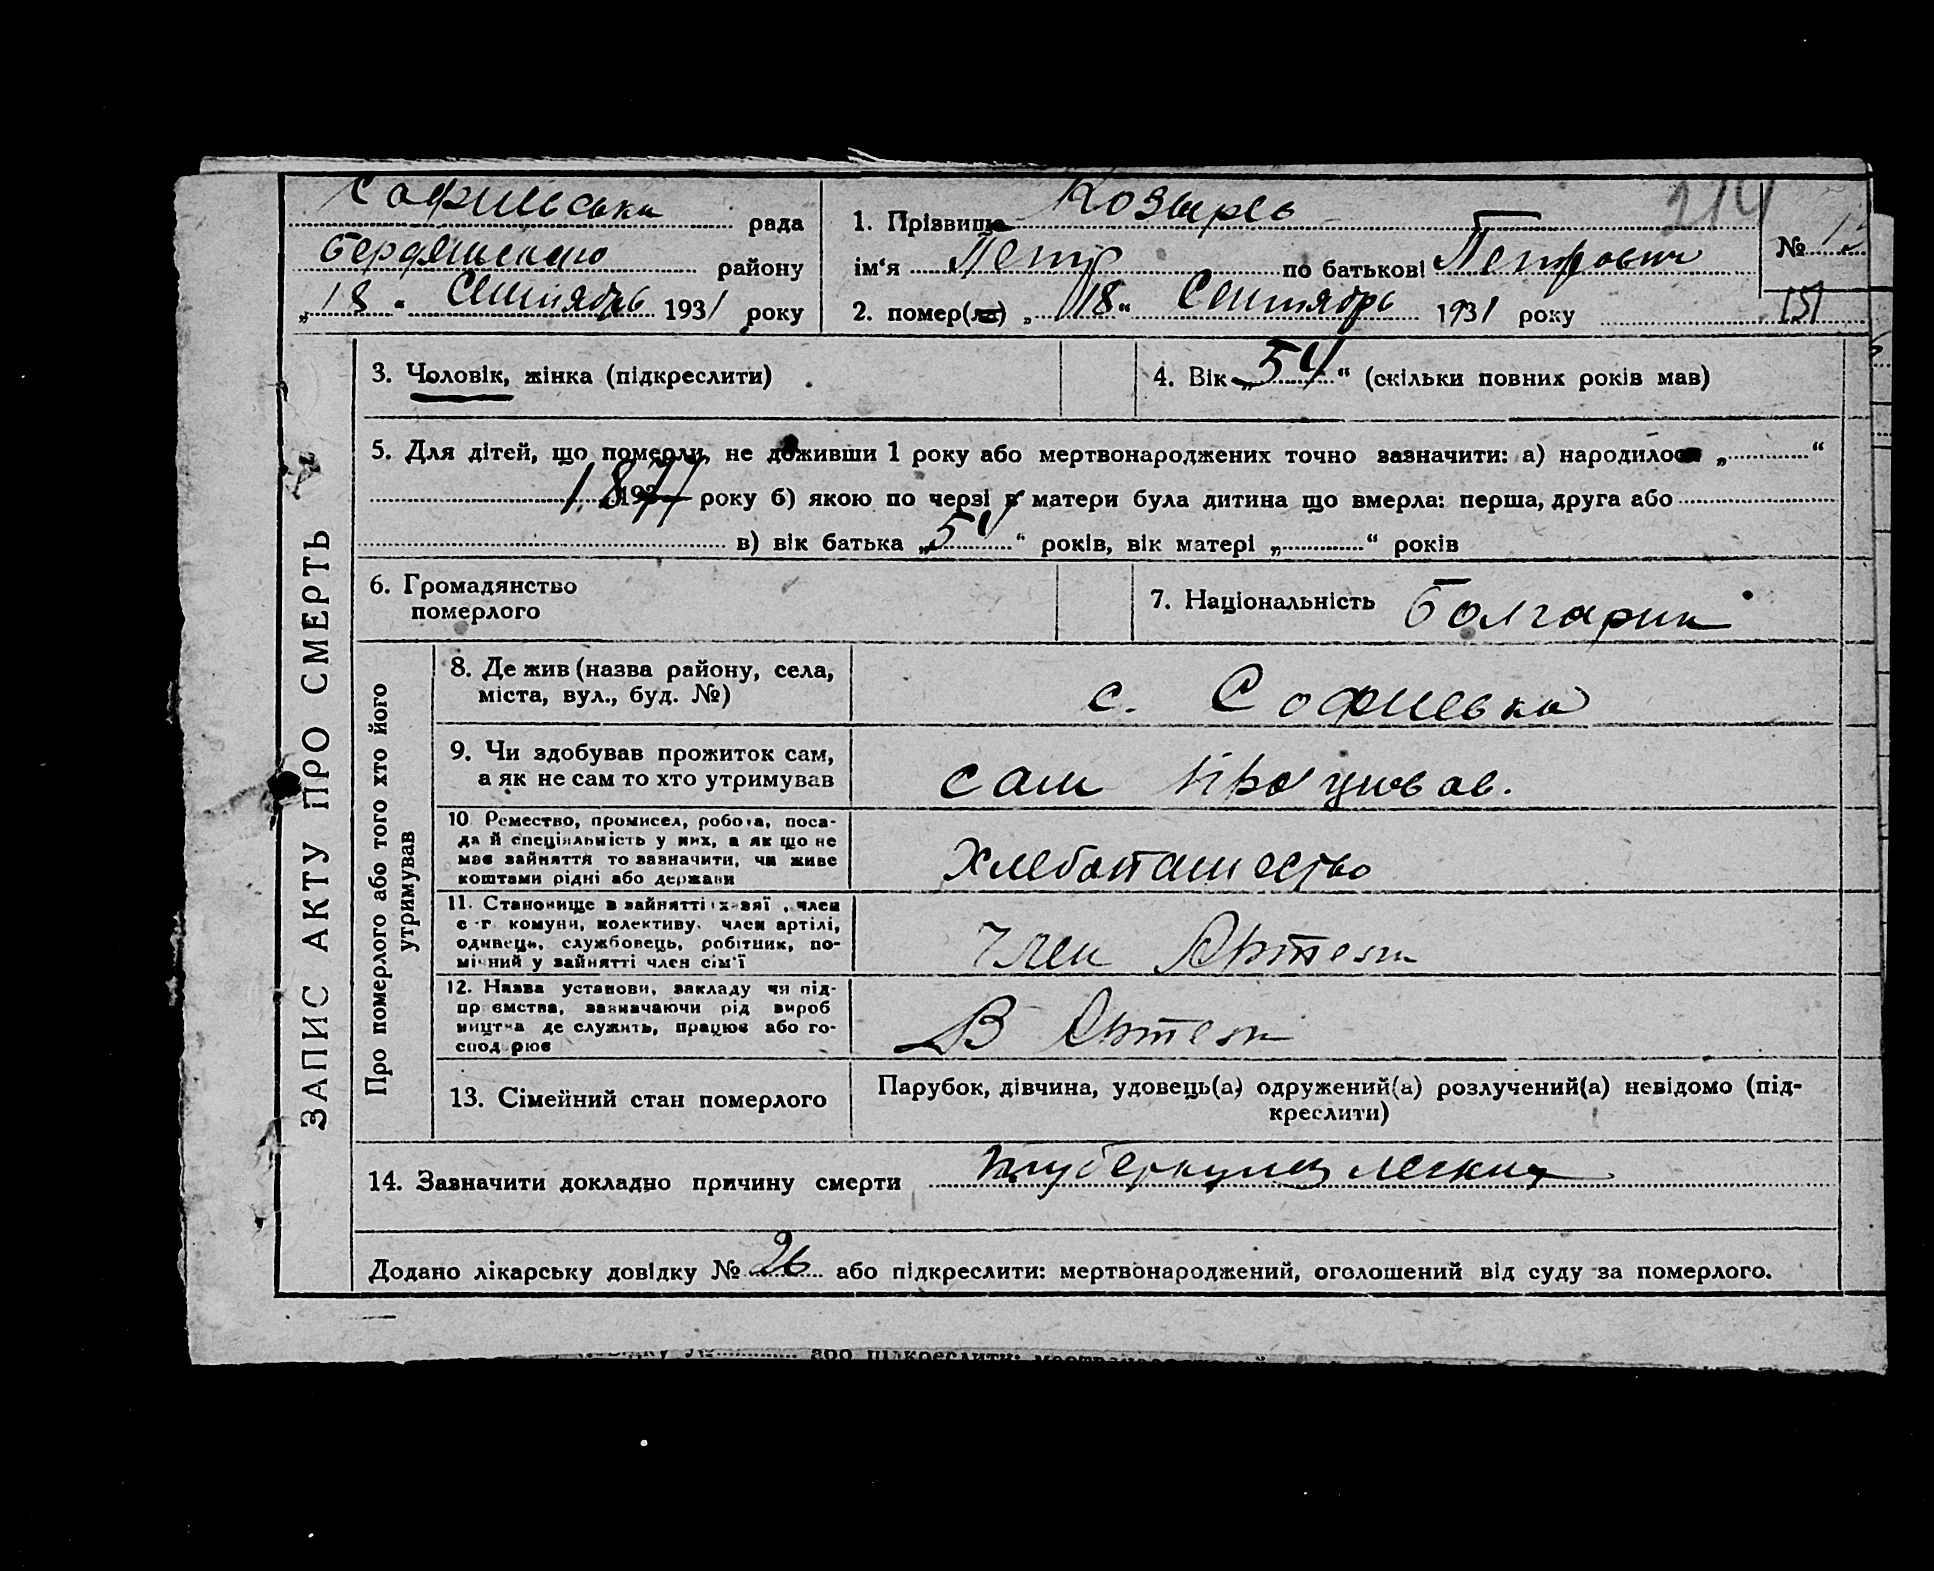 Софиевська рада
Бердянського району
„18“ Сентябрь 1931 року
1. Прізвище Козырев
ім‘я Петр по батькові Петрович
2. помер(ла) „18“ Сентябрь 1931 року
214
№ 12
151
ЗАПИС АКТУ ПРО СМЕРТЬ
3. Чоловік, жінка (підкреслити)
4. Вік „54“ (скільки повних років мав)
5. Для дітей, що померли, не доживши 1 року або мертвонароджених точно зазначити: а) народилося „ “
1877 року б) якою по черзі в матери була дитина що вмерла: перша, друга або
в) вік батька „54“ років, вік матері „ “ років
6. Громадянство
померлого
7. Національність Болгарин
Про померлого або того хто його
утримував
8. Де жив (назва району, села,
міста, вул., буд. №)
с. Софиевка
9. Чи здобував прожиток сам,
а як не сам то хто утримував
сам працював.
10. Ремество, промисел, робота, поса-
да й спеціяльність у них, а як що не
має зайняття то зазначити, чи живе
коштами рідні або держави
Хлебопашество
11. Становище в зайнятті: хазяї, член
с-г. комуни, колективу, член артілі,
одинець, службовець, робітник, по-
мічний у зайнятті член сім‘ї
Член Артели
12. Назва установи, закладу чи під-
приємства, зазначаючи рід вироб
ництва де служить, працює або го-
сподарює
В Артели
13. Сімейний стан померлого
Парубок, дівчина, удовець(а) одружений(а) розлучений(а) невідомо (під-
креслити)
14. Зазначити докладно причину смерти туберкулез легких
Додано лікарську довідку № 26 або підкреслити: мертвонароджений, оголошений від суду за померлого.